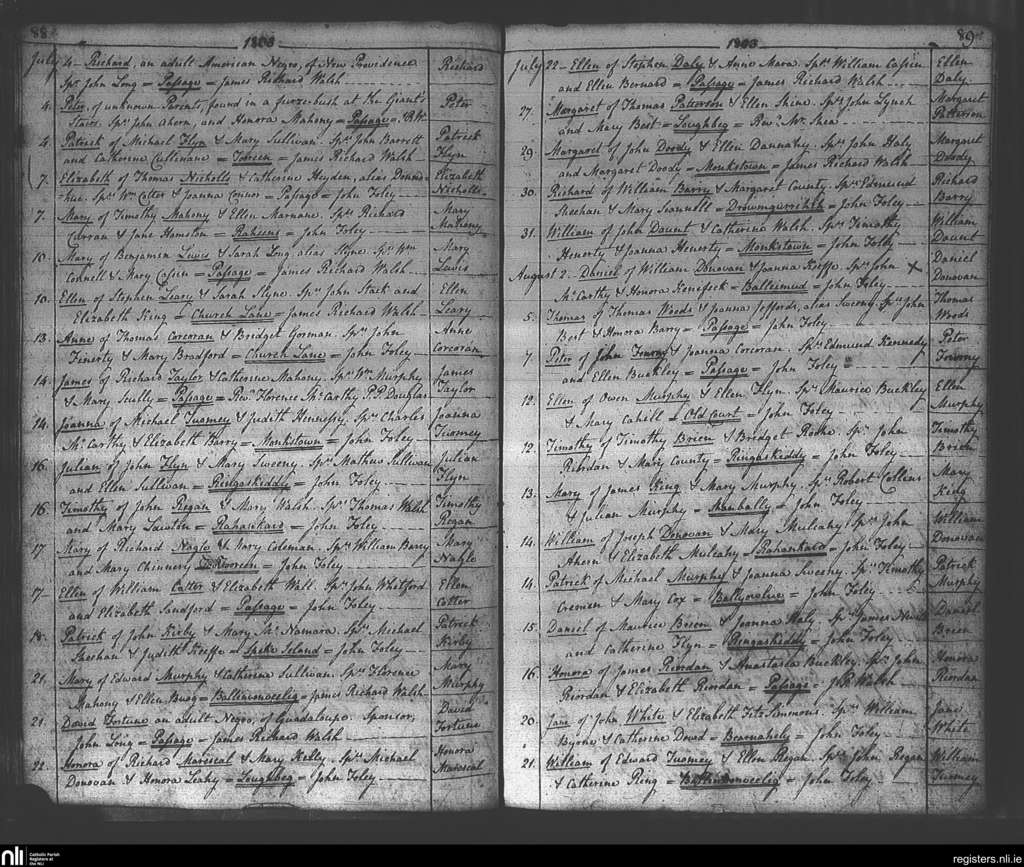 88
1808
July 4 - Richard, an adult American Negro, of New Providence
Spr. John Long = Passage = James Richard Walsh
Richard
4. Peter, of unknown Parents, found in a furze bush at the Giant's
Stairs. Sprs. John Ahern, and Honora Mahony = Passage =
Peter
4. Patrick of Michael Flyn & Mary Sullivan. Sprs. John Barrett
and Catherine Cullinane = = James Richard Walsh
Patrick
Flyn
7. Elizabeth of Thomas Nicholls & Catherine Heyden, alias Donno=
hue. Sprs. Wm. Cotter & Joanna Connor = Passage = John Foley
Elizabeth
Nicholls
7. Mary of Timothy Mahony & Ellen Marnane. Sprs. Richard
Curran & Jane = Raheens = John Foley
Mary
Mahony
10. Mary of Benjamin Lewis & Sarah Long, alias Slyne. Sprs. Wm.
Connell & Mary = Passage = James Richard Walsh
Mary
Lewis
10. Ellen of Stephen Leary & Sarah Slyne. Sprs. John Stack and
Elizabeth King = Church Lane = James Richard Walsh
Ellen
Leary
13. Anne of Thomas Corcoran & Bridget Gorman. Sprs. John
Finerty & Mary Bradford = Church Lane = John Foley
Anne
Corcoran
14. James of Richard Taylor & Catherine Mahony. Sprs. Wm. Murphy
& Mary Scully = Passage = Revd. Florence McCarthy P.P. Douglas
James
Taylor
14. Joanna of Michael Twomey & Judith Hennessy. Sprs. Charles
McCarthy & Elizabeth Barry = Monkstown = John Foley
Joanna
Twomey
16. Julian of John Flyn & Mary Sweeny. Sprs. Mathew Sullivan
and Ellen Sullivan = Ringaskiddy = John Foley
Julian
Flyn
16. Timothy of John Regan & Mary Walsh. Sprs. Thomas Walsh
and Mary = = John Foley
Timothy
Regan
17. Mary of Richard Nagle & Mary Coleman. Sprs. William Barry
and Mary Chinnery = John Foley
Mary
Nagle
17. Ellen of William Cotter & Elizabeth Wall. Sprs. John Whitford
and Elizabeth Sandford = Passage = John Foley
Ellen
Cotter
18. Patrick of John Kirby & Mary McNamara. Sprs. Michael
Sheehan & Judith Keeffe = Spike Island = John Foley
Patrick
Kirby
21. Mary of Edward Murphy & Catherine Sullivan. Sprs. Florence
Mahony & Ellen = = James Richard Walsh
Mary
Murphy
21. David Fortune an adult Negro, of Guadaloupe. Sponsor,
John Long = Passage = James Richard Walsh
David
Fortune
22. Honora of Richard Mariscal & Mary Kelly. Sprs. Michael
Donovan & Honora Leahy = Loughbeg = John Foley
Honora
Mariscal
89
1808
July 22 - Ellen of Stephen Daly & Anne Mara. Sprs. William
and Ellen Bernard = Passage = James Richard Walsh
Ellen
Daly
27. Margaret of Thomas Patterson & Ellen Shine. Sprs. John Lynch
and Mary Best = Loughbeg = Revd. Mr. Shea
Margaret
Patterson
29. Margaret of John Doody & Ellen Dannahy. Sprs. John Haly
and Margaret Doody = Monkstown = James Richard Walsh
Margaret
Doody
30. Richard of William Barry & Margaret County. Sprs. Edmund
Sheehan & Mary Scannell = = John Foley
Richard
Barry
31. William of John Daunt & Catherine Walsh. Sprs. Timothy
Henerty & Joanna Henerty = Monkstown = John Foley
William
Daunt
August 2. Daniel of William Donovan & Joanna Keeffe. Sprs. John
McCarthy & Honora Kenefeck = = John Foley
Daniel
Donovan
5. Thomas of Thomas Woods & Joanna Jeffords, alias Sweeny. Sprs. John
Best & Honora Barry = Passage = John Foley
Thomas
Woods
7. Peter of John & Joanna Corcoran. Sprs. Edmund Kennedy
and Ellen Buckley = Passage = John Foley
Peter
12. Ellen of Owen Murphy & Ellen Flyn. Sprs. Maurice Buckley
& Mary Cahill = Old Court = John Foley
Ellen
Murphy
12. Timothy of Timothy Brien & Bridget Roche. Sprs. John
Riordan & Mary County = Ringaskeddy = John Foley
Timothy
Brien
13. Mary of James King & Mary Murphy. Sprs. Robert Collins
& Julian Murphy = Shanbally = John Foley
Mary
King
14. William of Joseph Donovan & Mary Mulcahy. Sprs. John
Ahern & Elizabeth Mulcahy = = John Foley
William
Donovan
14. Patrick of Michael Murphy & Joanna Sweeny. Sprs. Timothy
Cremen & Mary Cox = = John Foley
Patrick
Murphy
15. Daniel of Maurice Brien & Joanna Haly. Sprs. James
and Catherine Flyn = Ringaskiddy = John Foley
Daniel
Brien
16. Honora of James Riordan & Anastasia Buckley. Sprs. John
Riordan & Elizabeth Riordan = Passage = J.R. Walsh
Honora
Riordan
20. Jane of John White & Elizabeth FitzSimmons. Sprs. William
Byrne & Catherine = = John Foley
Jane
White
21. William of Edward Twomey & Ellen Regan. Sprs. John Regan
& Catherine Ring = = John Foley
William
Twomey
nli
Catholic Parish
Registers at
the NLI
registers.nli.ie